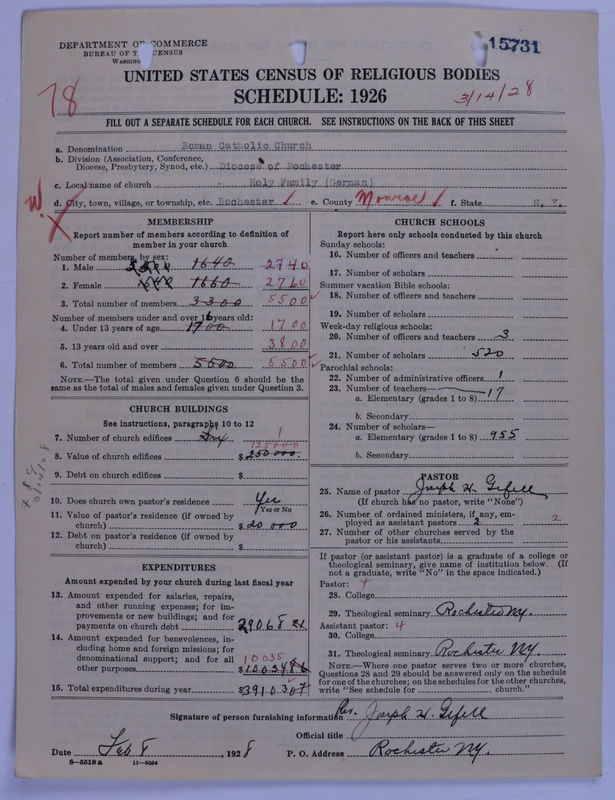 DEPARTMENT OF COMMERCE
BUREAU OF THE CENSUS
WASHINGTON
15731
UNITED STATES CENSUS OF RELIGIOUS BODIES
SCHEDULE: 1926
78
3/14/28
FILL OUT A SEPARATE SCHEDULE FOR EACH CHURCH. SEE INSTRUCTIONS ON THE BACK OF THIS SHEET
a. Denomination Roman Catholic Church
b. Division (Association, Conference, Diocese, Presbytery, Synod, etc.) Diocese of Rochester
c. Local name of church Holy Family (German)
d. City, town, village, or township, etc. Rochester e. County Monroe f. State N. Y.
MEMBERSHIP
Report number of members according to definition of
member in your church
Number of members by sex:
1. Male 1640 2740
2. Female 1660 2760
3. Total number of members 3300 5500
Number of members under and over 13 years old:
4. Under 13 years of age 1700 1700
5. 13 years old and over 3800
6. Total number of members 5500 5500
NOTE.—The total given under Question 6 should be the
same as the total of males and females given under Question 3.
CHURCH BUILDINGS
See instructions, paragraphs 10 to 12
7. Number of church edifices 1
8. Value of church edifices $250000 125000
9. Debt on church edifices $
10. Does church own pastor's residence Yes
Yes or No
11. Value of pastor's residence (if owned by
church) $20 000
12. Debt on pastor's residence (if owned by
church) $
EXPENDITURES
Amount expended by your church during last fiscal year
13. Amount expended for salaries, repairs,
and other running expenses; for im-
provements or new buildings; and for
payments on church debt 29068 21
14. Amount expended for benevolences, in-
cluding home and foreign missions; for
denominational support; and for all
other purposes $10034 86 10035
15. Total expenditures during year $39103 07
CHURCH SCHOOLS
Report here only schools conducted by this church
Sunday schools:
16. Number of officers and teachers
17. Number of scholars
Summer vacation Bible schools:
18. Number of officers and teachers
19. Number of scholars
Week-day religious schools:
20. Number of officers and teachers 3
21. Number of scholars 520
Parochial schools:
22. Number of administrative officers 1
23. Number of teachers—
a. Elementary (grades 1 to 8) 17
b. Secondary
24. Number of scholars—
a. Elementary (grades 1 to 8) 955
b. Secondary
PASTOR
25. Name of pastor Joseph H. Gefell
(If church has no pastor, write "None")
26. Number of ordained ministers, if any, em-
ployed as assistant pastors 2 2
27. Number of other churches served by the
pastor or his assistants
If pastor (or assistant pastor) is a graduate of a college or
theological seminary, give name of institution below. (If
not a graduate, write "No" in the space indicated.)
Pastor: 4
28. College
29. Theological seminary Rochester N.Y.
Assistant pastor: 4
30. College
31. Theological seminary Rochester N.Y.
NOTE.—Where one pastor serves two or more churches,
Questions 28 and 29 should be answered only on the schedule
for one of the churches; on the schedules for the other churches,
write "See schedule for church."
Signature of person furnishing information Rev. Joseph H. Gefell
Official title
Date Feb 8, 1928 P. O. Address Rochester N.Y.
8—5518a 11—9054